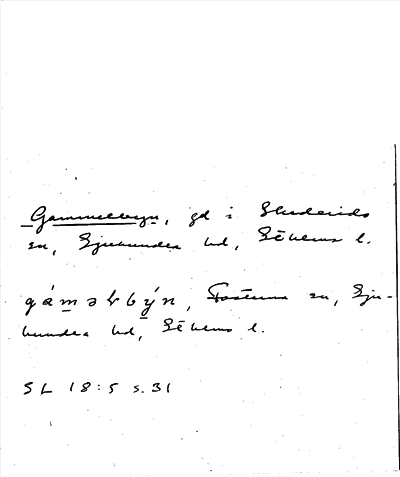 Gammelbyn, gd i Skederids
sn, Sjuhundra hd, Sthlms l.
gáməlbýn, Fasterna sn, Sju-
hundra hd, Sthlms l.
SL 18:5 s. 31